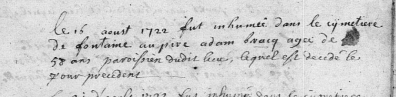 le 16 aoust 1722 fut inhumée dans le cymetiere
de fontaine au pire adam bracq agée de
58 ans paroissien dudit lieu, lequel est decedé le
jour precedent